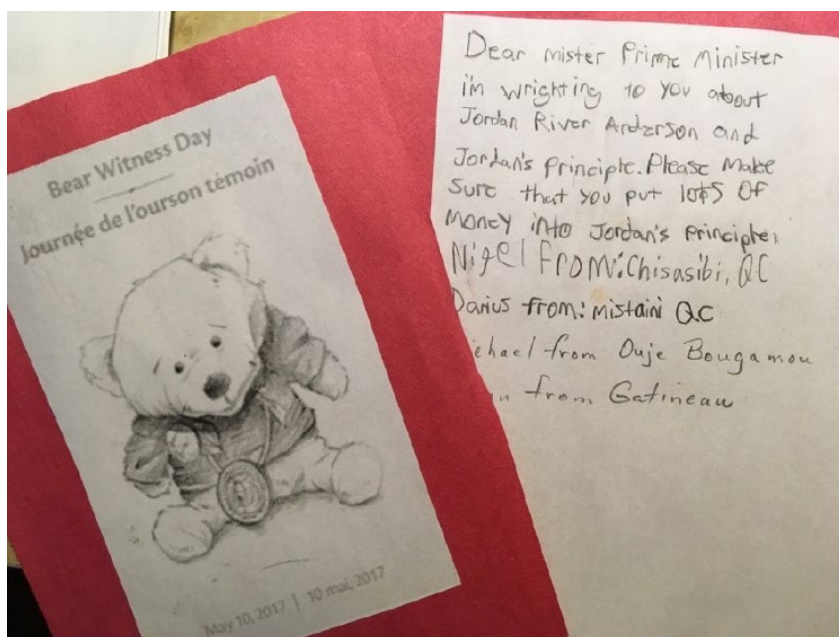 Bear Witness Day
Journée de l'ourson témoin
May 10, 2017 | 10 mai, 2017
Dear mister Prime Minister
i'm wrighting to you about
Jordan River Anderson and
Jordan's principle. Please make
Sure that you put lots of
money into Jordan's principle.
Nigel From: Chisasibi, QC
Darius from: mistaini QC
from Ouje Bougamou
from Gatineau